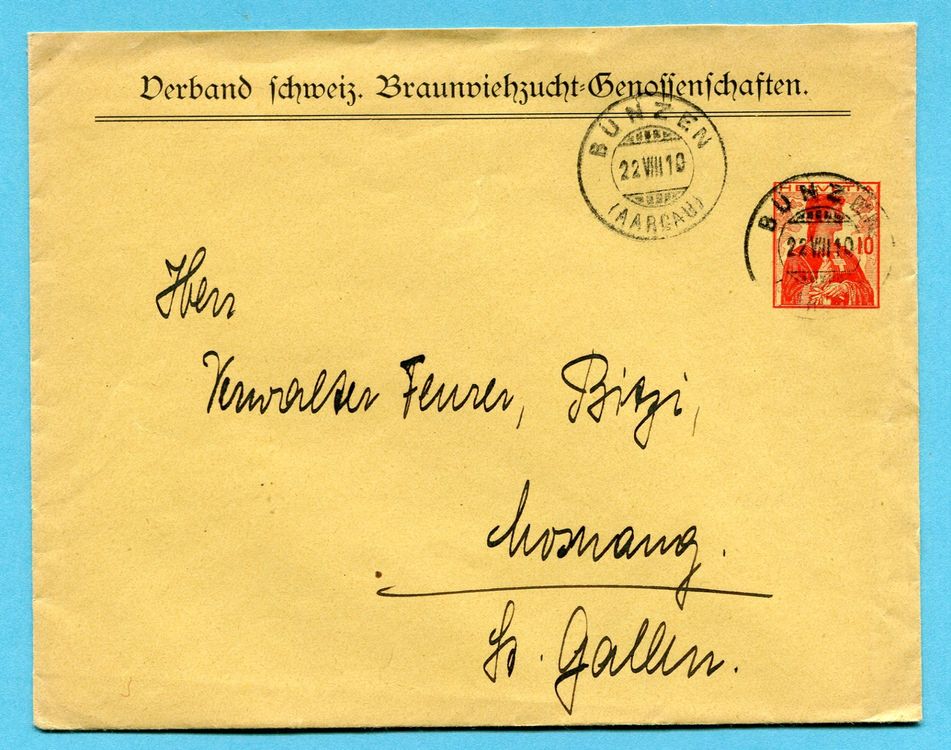 Verband schweiz. Braunviehzucht-Genossenschaften.
BÜNZEN
22 VIII 10
(AARGAU)
HELVETIA
10
BÜNZEN
22 VIII 10
Herr
Verwalter Feurer, Bitzi,
Mosnang.
St. Gallen.